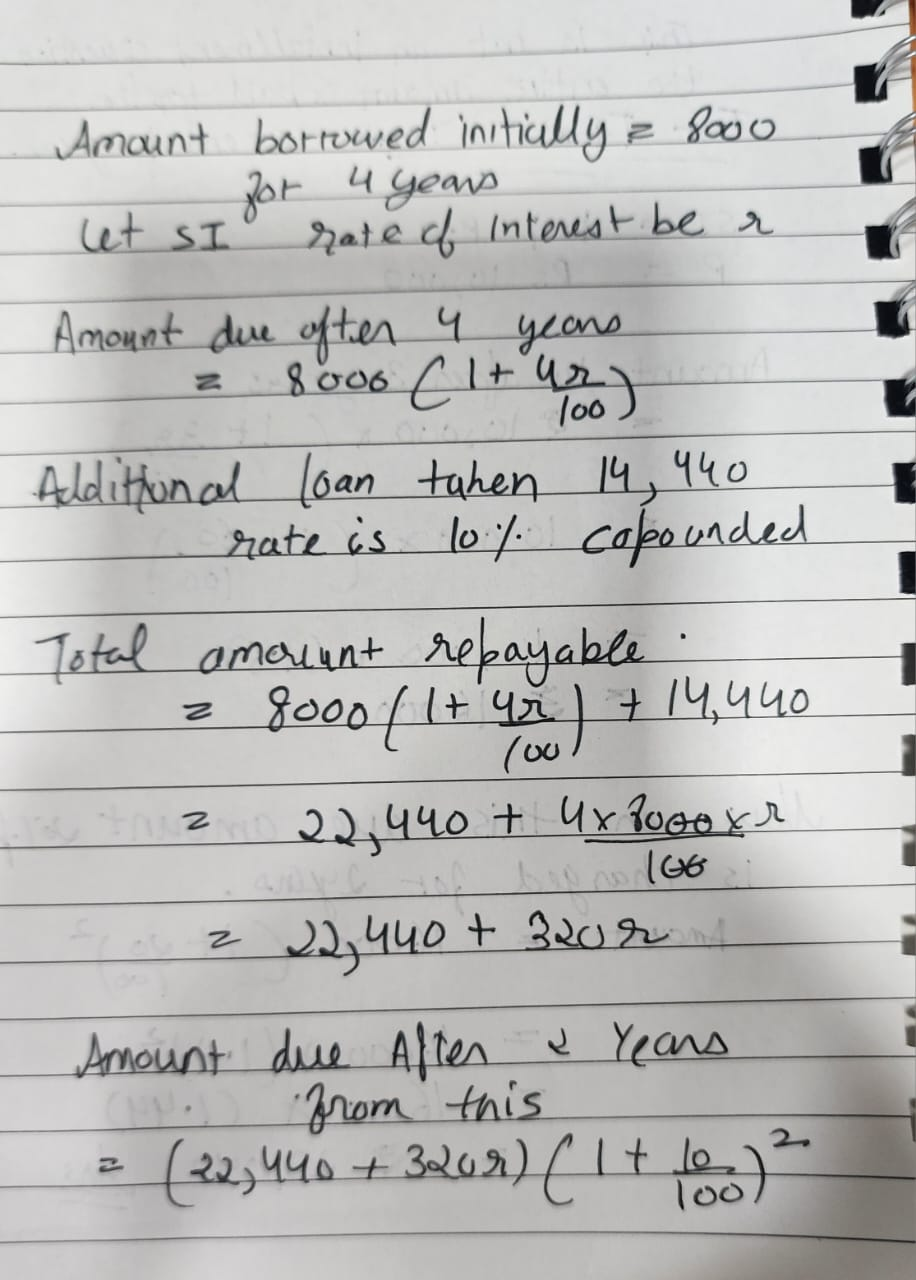 Amount borrowed initially = 8000
for 4 years
Let SI rate of Interest be r
Amount due after 4 years
= 8000 (1 + 4r/100)
Additional loan taken 14,440
rate is 10% capounded
Total amount repayable
= 8000 (1 + 4r/100) + 14,440
= 22,440 + 4x8000xr/100
= 22,440 + 320r
Amount due After 2 Years
from this
= (22,440 + 320r) (1 + 10/100)²